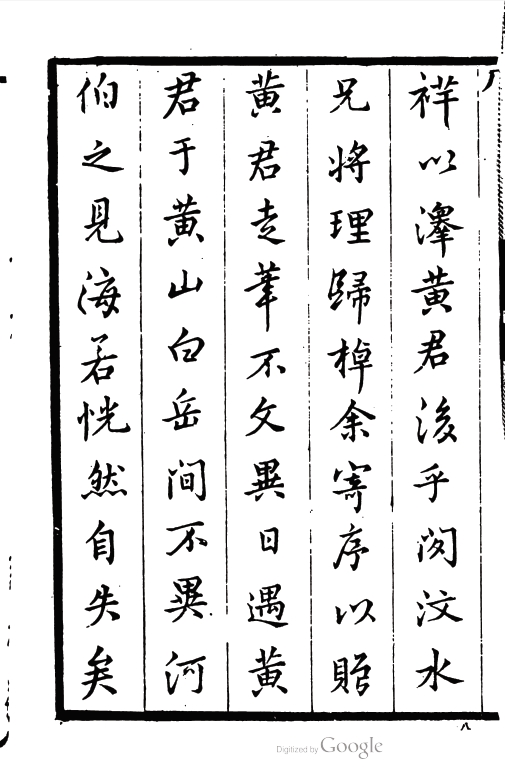 祥以澤黄君後乎閔汶水
兄将理歸棹余寄序以贈
黄君走筆不文異日遇黄
君于黄山白岳间不異河
伯之見海若恍然自失矣
八
Digitized by Google